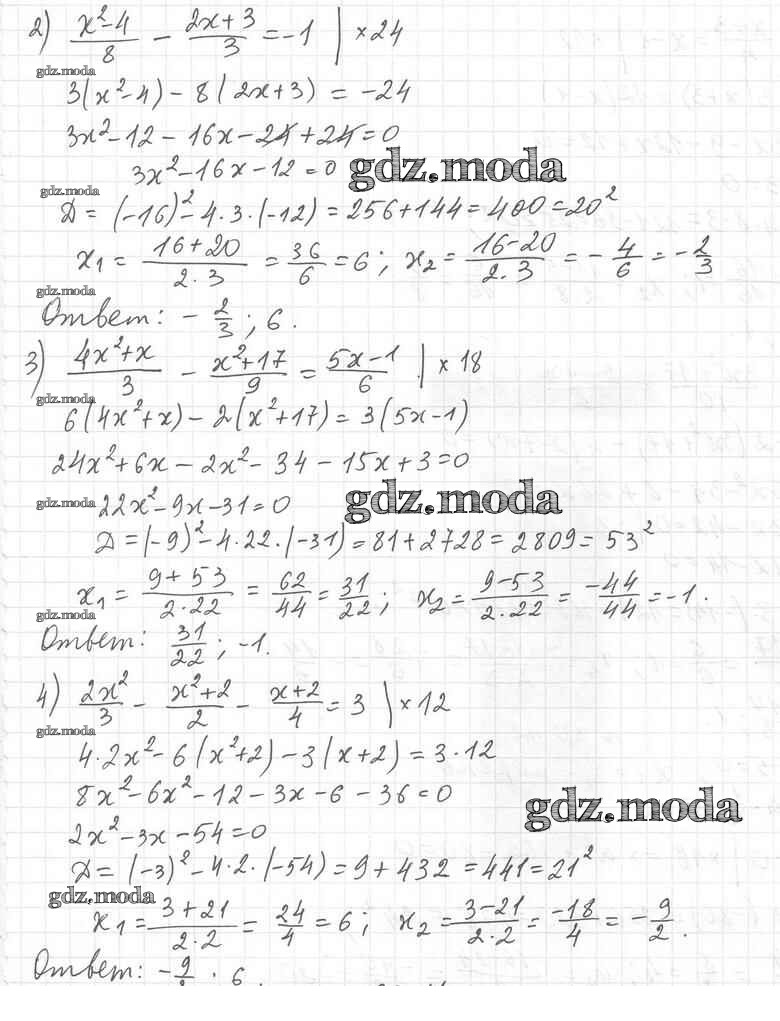 2) (x²-4)/8 - (2x+3)/3 = -1 | ×24
gdz.moda
3(x²-4) - 8(2x+3) = -24
3x²-12-16x-24+24=0
3x²-16x-12=0 gdz.moda
gdz.moda
Д = (-16)²-4·3·(-12) = 256+144 = 400 = 20²
x₁ = (16+20)/(2·3) = 36/6 = 6; x₂ = (16-20)/(2·3) = -4/6 = -2/3
gdz.moda
Ответ: -2/3; 6.
3) (4x²+x)/3 - (x²+17)/9 = (5x-1)/6 | ×18
gdz.moda
6(4x²+x) - 2(x²+17) = 3(5x-1)
24x²+6x-2x²-34-15x+3=0
gdz.moda 22x²-9x-31=0 gdz.moda
Д = (-9)²-4·22·(-31) = 81+2728 = 2809 = 53²
x₁ = (9+53)/(2·22) = 62/44 = 31/22; x₂ = (9-53)/(2·22) = -44/44 = -1.
gdz.moda
Ответ: 31/22; -1.
4) 2x²/3 - (x²+2)/2 - (x+2)/4 = 3 | ×12
gdz.moda
4·2x²-6(x²+2)-3(x+2) = 3·12
8x²-6x²-12-3x-6-36=0
gdz.moda
2x²-3x-54=0
Д = (-3)²-4·2·(-54) = 9+432 = 441 = 21²
gdz.moda
x₁ = (3+21)/(2·2) = 24/4 = 6; x₂ = (3-21)/(2·2) = -18/4 = -9/2.
Ответ: -9/2; 6.